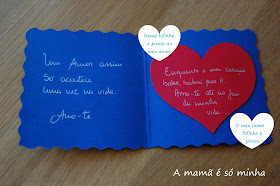 Um Amor assim
Só acontece
uma vez na vida.
Amo-te
Nome fofinho
e piroso do
meu amor
Enquanto o meu coração
bater, baterá por ti.
Amo-te até ao fim
da minha
vida.
O meu nome
fofinho e
piroso
A mamã é só minha